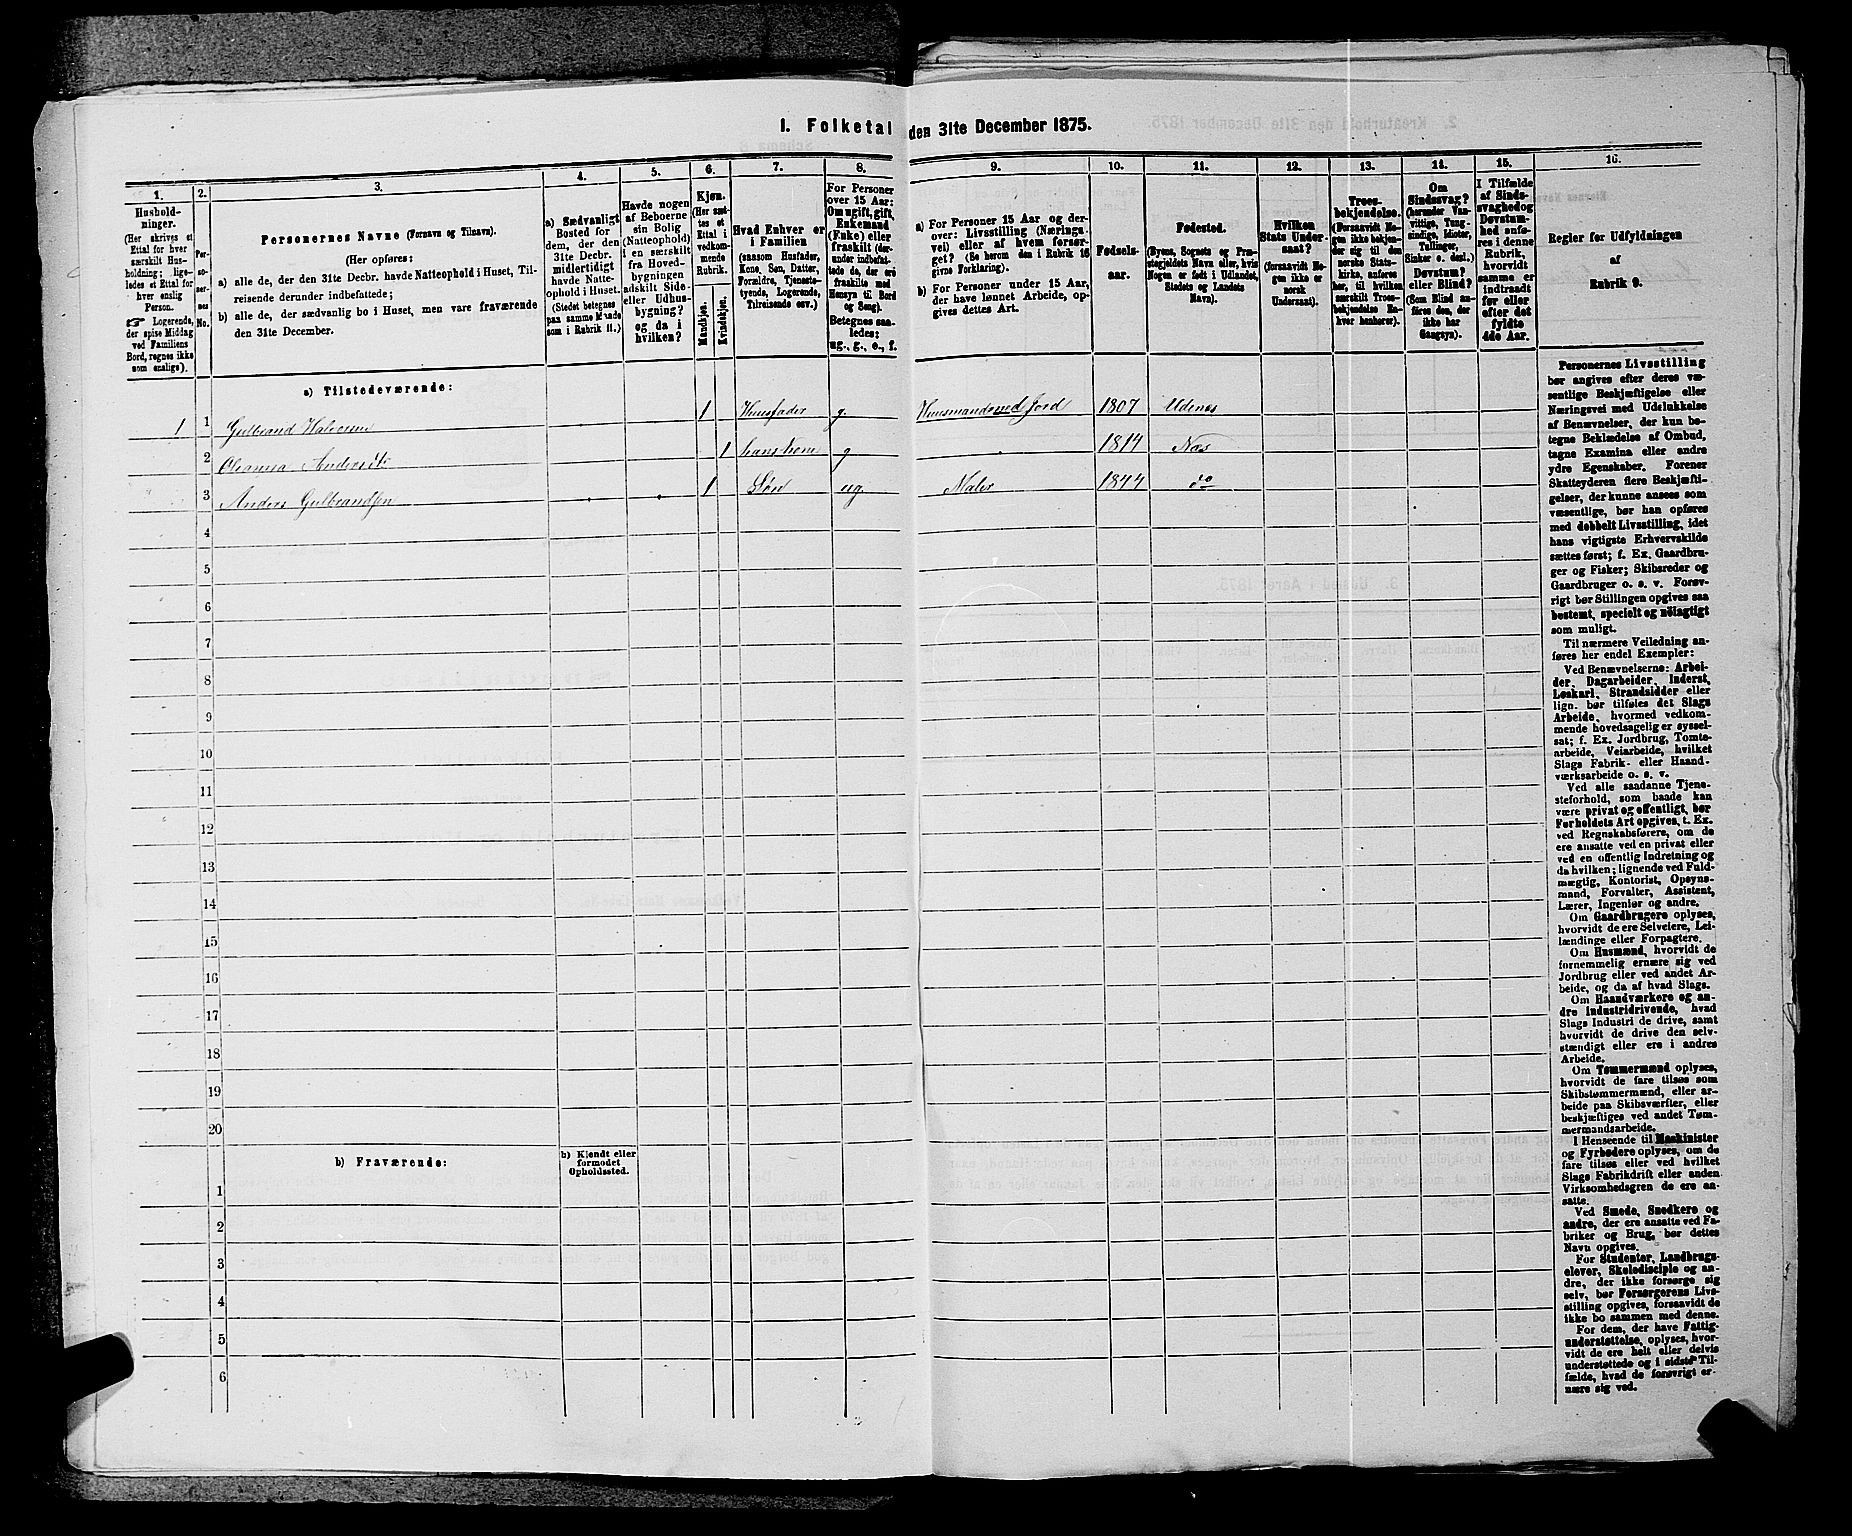 1. Folketal den 31te December 1875.
1.
Hushold-
ninger.
(Her skrives et
Ettal for hver
særskilt Hus-
holdning; lige-
ledes et Ettal for
hver enslig
Person.
☞ Logerende,
der spise Middag
ved Familiens
Bord, regnes ikke
som enslige).
2.
Per-
so-
ner-
nes
No.
3.
Personernes Navne (Fornavn og Tilnavn).
(Her opføres:
a) alle de, der den 31te Decbr. havde Natteophold i Huset, Til-
reisende derunder indbefattede;
b) alle de, der sædvanlig bo i Huset, men vare fraværende
den 31te December.
4.
a) Sædvanligt
Bosted for
dem, der den
31te Decbr.
midlertidigt
havde Natte-
ophold i Huset.
(Stedet betegnes
paa samme Maade
som i Rubrik 11.)
5.
Havde nogen
af Beboerne
sin Bolig
(Natteophold)
i en særskilt
fra Hoved-
bygningen
adskilt Side-
eller Udhus-
bygning?
og da i
hvilken?
6.
Kjøn.
(Her sæt-
tes et
Ettal i
vedkom-
mende
Rubrik.
Mandkjøn.
Kvindekjøn.
7.
Hvad Enhver er
i Familien
(saasom Husfader,
Kone, Søn, Datter,
Forældre, Tjeneste-
tyende, Logerende,
Tilreisende osv.)
8.
For Personer
over 15 Aar:
Om ugift, gift,
Enkemand
(Enke) eller
fraskilt (der-
under indbefat-
tede da, der ere
fraskilte med
Hensyn til Bord
og Seng).
Betegnes saa-
ledes:
ug., g., e., f.
9.
a) For Personer 15 Aar og der-
over: Livsstilling (Nærings-
vei) eller af hvem forsør-
get? (Se herom den i Rubrik 16
givne Forklaring).
b) For Personer under 15 Aar,
der have lønnet Arbeide, op-
gives dettes Art.
10.
Fødsels-
aar.
11.
Fødested.
(Byens, Sognets og Præ-
stegjeldets Navn eller, hvis
Nogen er født i Udlandet,
Stedets og Landets
Navn).
12.
Hvilken
Stats Under-
saat?
(forsaavidt No-
gen ikke er
norsk
Undersaat).
13.
Troes-
bekjendelse.
(Forsaavidt No-
gen ikke bekjen-
der sig til den
norske Stats-
kirke, anføres
her, til hvilken
særskilt Troes-
bekjendelse En-
hver henhører).
14.
Om
Sindssvag?
(herunder Van-
vittige, Tung-
sindige, Idioter,
Tullinger,
Sinker o. desl.)
Døvstum?
eller Blind?
(Som Blind an-
føres den, der
ikke har
Gangsyn).
15.
I Tilfælde
af Sinds-
svaghed og
Døvstum-
hed anfø-
res i denne
Rubrik,
hvorvidt
samme er
indtraadt
før eller
efter det
fyldte
4de Aar.
16.
Regler for Udfyldningen
af
Rubrik 9.
a) Tilstedeværende:
1 1 Gulbrand Halvorsen 1 Huusfader g. Huusmand med Jord 1807 Udenes
2 Oleanna Andersdtr 1 hans kone g 1814 Næs
3 Anders Gulbrandsen 1 Søn ug Maler 1844 do
4
5
6
7
8
9
10
11
12
13
14
15
16
17
18
19
20
b) Fraværende:
b) Kjendt eller
formodet
Opholdssted.
1
2
3
4
5
6
Personernes Livsstilling
bør angives efter deres væ-
sentlige Beskjæftigelse eller
Næringsvei med Udelukkelse
af Benævnelser, der kun be-
tegne Beklædelse af Ombud,
tagne Examina eller andre
ydre Egenskaber. Forener
Skatteyderen flere Beskjæfti-
gelser, der kunne ansees som
væsentlige, bør han opføres
med dobbelt Livsstilling, idet
hans vigtigste Erhvervskilde
sættes først; f. Ex. Gaardbru-
ger og Fisker; Skibsreder og
Gaardbruger o. s. v. Forøv-
rigt bør Stillingen opgives saa
bestemt, specielt og nøiagtigt
som muligt.
Til nærmere Veiledning an-
føres her endel Exempler:
Ved Benævnelserne: Arbei-
der, Dagarbeider, Inderst,
Løskarl, Strandsidder eller
lign. bør tilføies det Slags
Arbeide, hvormed vedkom-
mende hovedsagelig er syssel-
sat; f. Ex. Jordbrug, Tomte-
arbeide, Veiarbeide, hvilket
Slags Fabrik- eller Haand-
værksarbeide o. s. v.
Ved alle saadanne Tjene-
steforhold, som baade kan
være privat og offentligt, bør
Forholdets Art opgives, t. Ex.
ved Regnskabsførere, om de
ere ansatte ved en privat eller
ved en offentlig Indretning og
da hvilken; lignende ved Fuld-
mægtig, Kontorist, Opsyns-
mand, Forvalter, Assistent,
Lærer, Ingeniør og andre.
Om Gaardbrugere oplyses,
hvorvidt de ere Selveiere, Lei-
lændinge eller Forpagtere.
Om Husmænd, hvorvidt de
fornemmelig ernære sig ved
Jordbrug eller ved andet Ar-
beide, og da af hvad Slags.
Om Haandværkere og an-
dre Industridrivende, hvad
Slags Industri de drive, samt
hvorvidt de drive den selv-
stændigt eller ere i andres
Arbeide.
Om Tømmermænd oplyses,
hvorvidt de fare tilsøs som
Skibstømmermænd, eller ar-
beide paa Skibsværfter, eller
beskjæftiges ved andet Tøm-
mermandsarbeide.
I Henseende til Maskinister
og Fyrbødere oplyses, om de
fare tilsøs eller ved hvilket
Slags Fabrikdrift eller anden
Virksomhedsgren de ere an-
satte.
Ved Smede, Snedkere og
andre, der ere ansatte ved Fa-
briker og Brug, bør dettes
Navn opgives.
For Studenter, Landbrugs-
elever, Skoledisciple og an-
dre, der ikke forsørge sig
selv, bør Forsørgerens Livs-
stilling opgives, forsaavidt de
ikke bo sammen med denne.
For dem, der have Fattig-
understøttelse, oplyses, hvor-
vidt de ere helt eller delvis
understøttede og i sidste Til-
fælde, hvad de forøvrigt er-
nære sig ved.